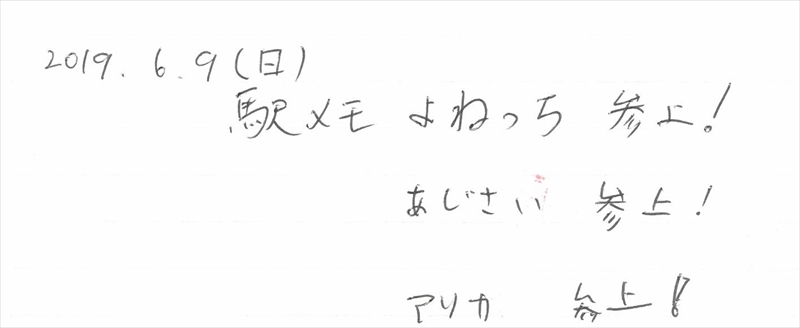 2019. 6. 9 (日)
駅メモ よねっち 参上!
あじさい 参上!
アリカ 参上!